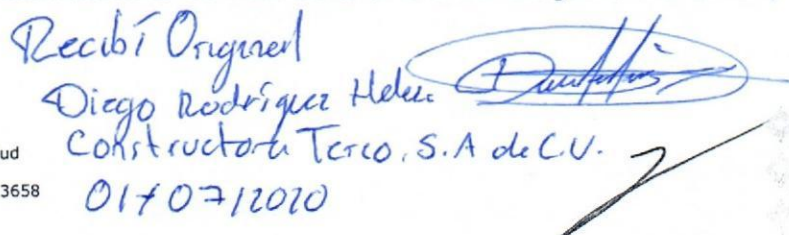 Recibí Original
Diego Rodríguez Helu
ud Constructora Terco, S.A de C.V.
3658 01/07/2020